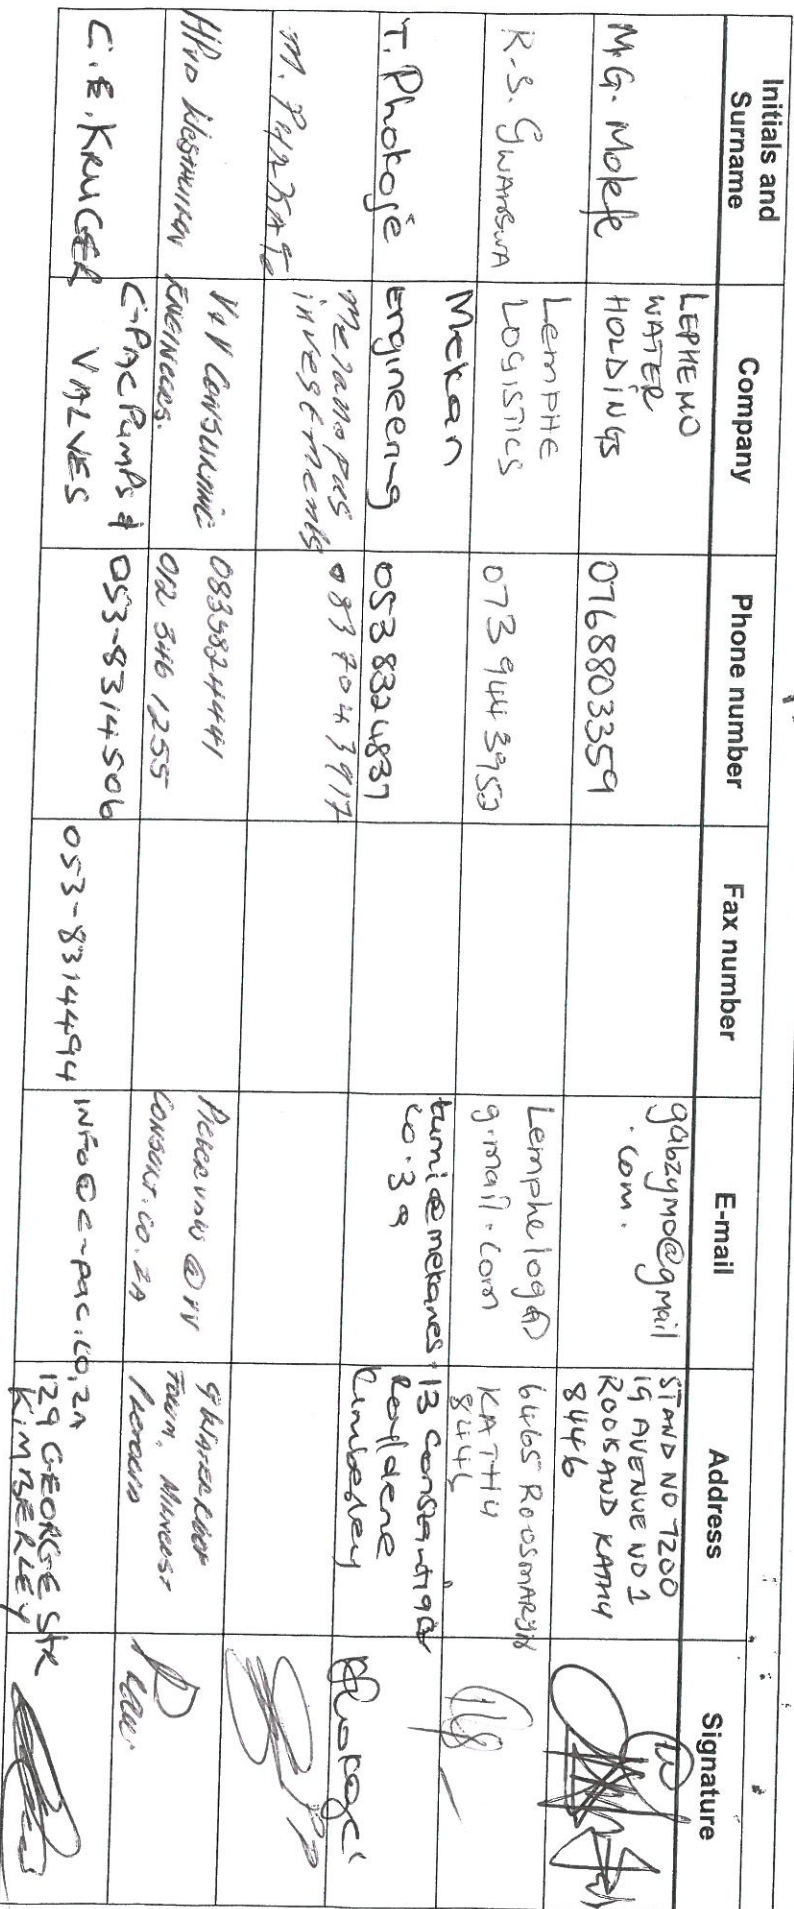 Initials and Surname
Company
Phone number
Fax number
E-mail
Address
Signature
M.G. Molefe
LEPHEMO
WATER
HOLDINGS
0768803359
gabzymo@gmail
.com.
STAND NO 7200
19 AVENUE NO 1
ROOISAND KATHU
8446
R.S. GWAMBWA
LEMPHE
LOGISTICS
073 944 3952
Lemphelog@
gmail.com
6465 ROOSMARYN
KATHU
8446
T. Phokoje
Mekan
Engineering
053 832 4837
13 Constantia
Royldene
Kimberley
M.
investments
083 704 3917
V&V CONSULTING
ENGINEERS.
0835824441
012 346 1255
CONSULT.CO.ZA
C.E. KRUGER
C-PAC PUMPS &
VALVES
053-8314506
053-8314494
INFO@C-PAC.CO.ZA
129 GEORGE STR
KIMBERLEY